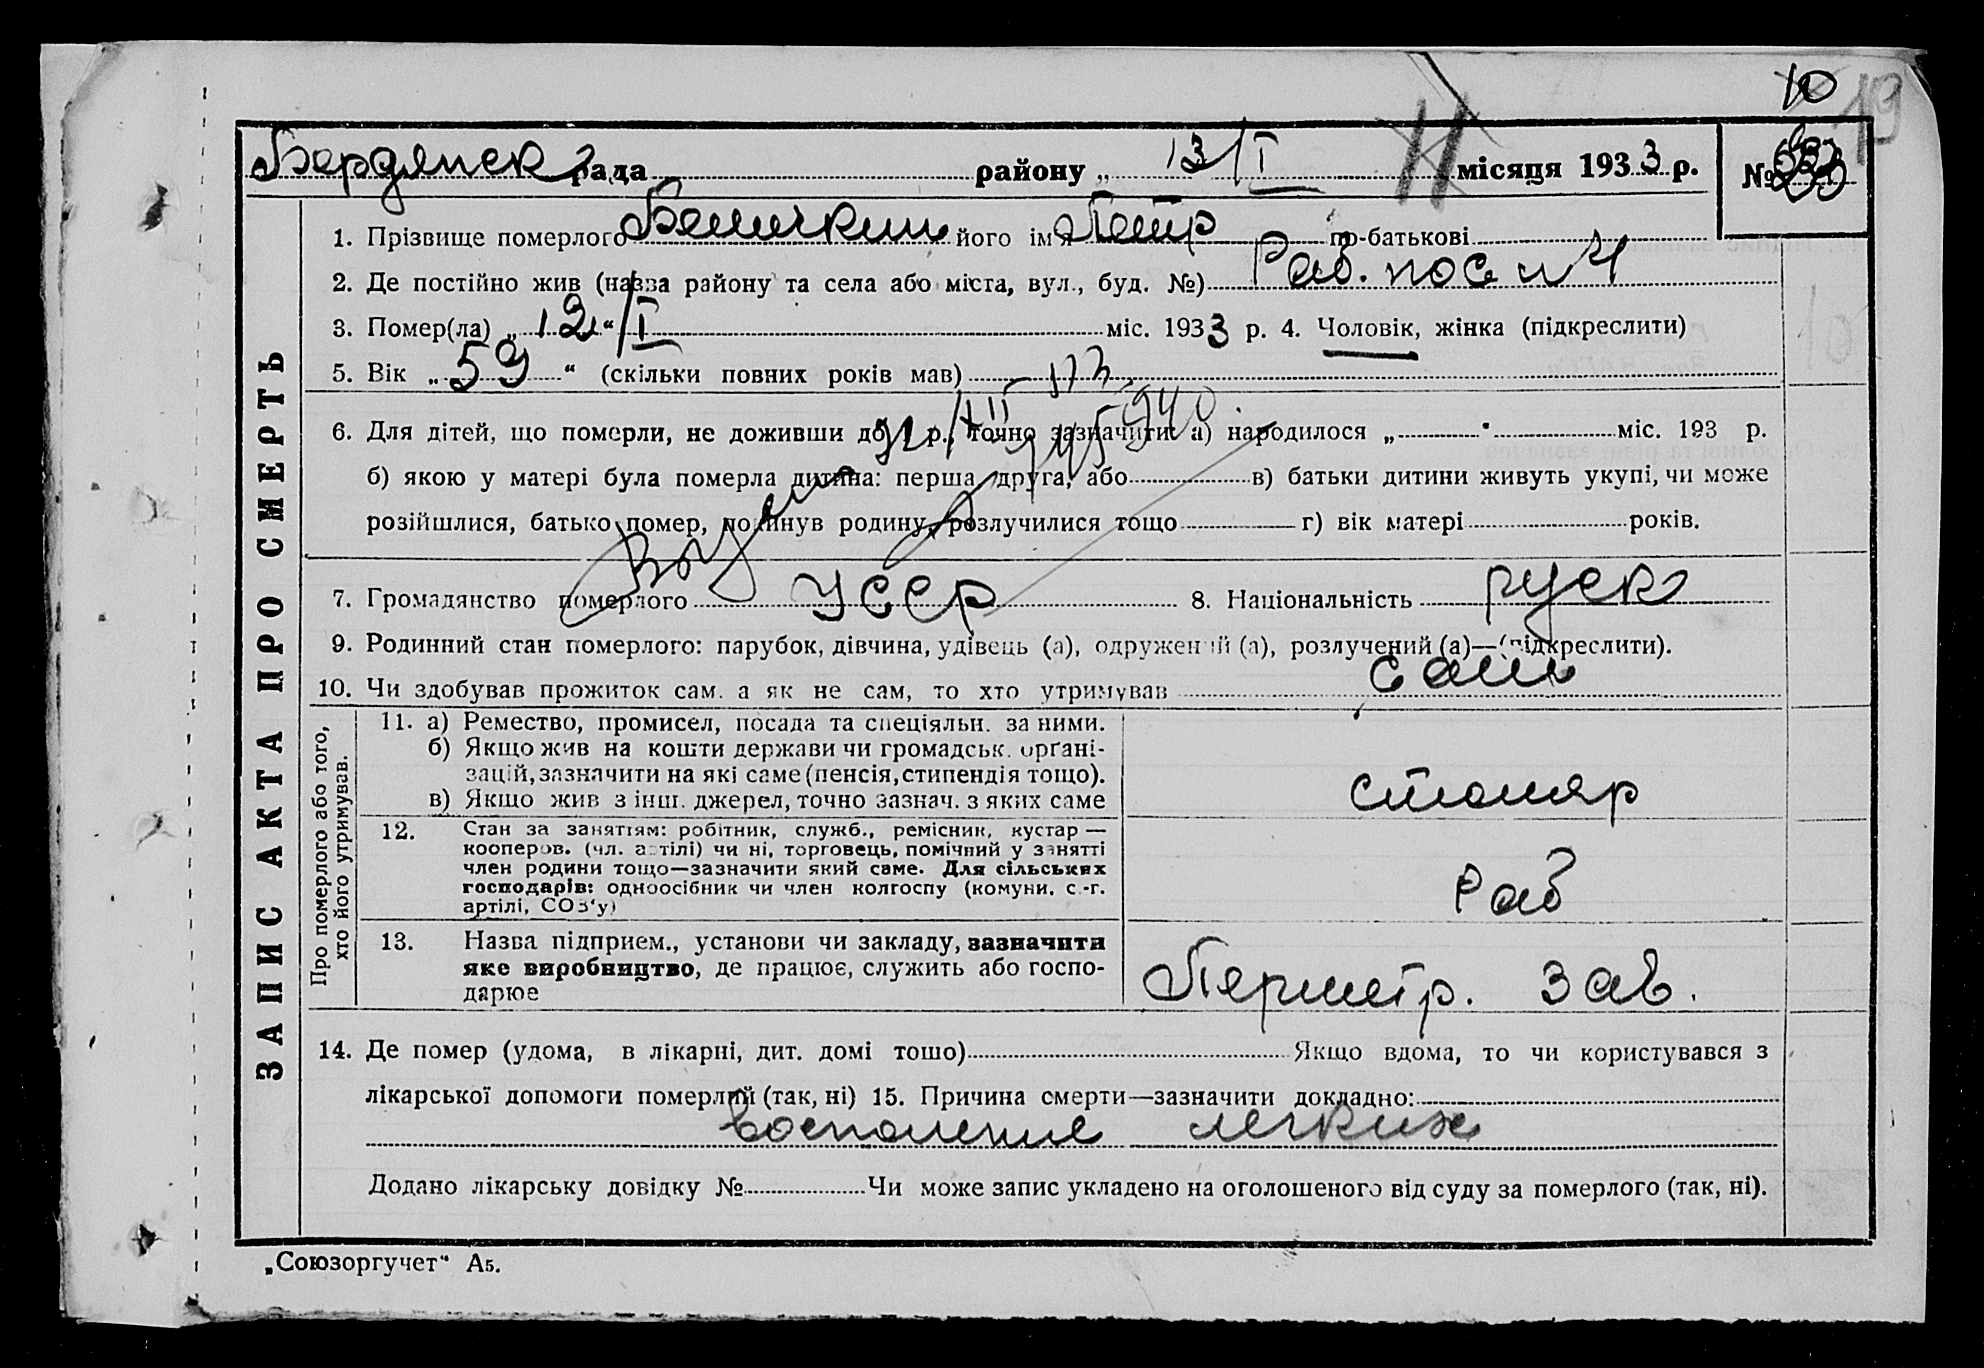 10 19
Бердянск рада району „ 13/I місяця 1933 р. №
1. Прізвище померлого його ім'я Петр по-батькові
2. Де постійно жив (назва району та села або міста, вул., буд. №) Раб. пос
3. Помер(ла) „ 12 “ /I міс. 1933 р. 4. Чоловік, жінка (підкреслити)
5. Вік „ 59 “ (скільки повних років мав)
6. Для дітей, що померли, не доживши до 1 р., точно зазначити: а) народилося „ “ міс. 193 р.
б) якою у матері була померла дитина: перша, друга, або в) батьки дитини живуть укупі, чи може
розійшлися, батько помер, покинув родину, розлучилися тощо г) вік матері років.
7. Громадянство померлого УССР 8. Національність руск
9. Родинний стан померлого: парубок, дівчина, удівець (а), одружений (а), розлучений (а)—(підкреслити).
10. Чи здобував прожиток сам, а як не сам, то хто утримував сам
ЗАПИС АКТА ПРО СМЕРТЬ
Про померлого або того,
хто його утримував.
11. а) Ремество, промисел, посада та спеціяльн. за ними.
б) Якщо жив на кошти держави чи громадськ. орґані-
зацій, зазначити на які саме (пенсія, стипендія тощо).
в) Якщо жив з інш. джерел, точно зазнач. з яких саме
столяр
12. Стан за заняттям: робітник, служб., ремісник, кустар —
кооперов. (чл. артілі) чи ні, торговець, помічний у занятті
член родини тощо—зазначити який саме. Для сільських
господарів: одноосібник чи член колгоспу (комуни, с.-г.
артілі, СОЗ'у)
Раб
13. Назва підприєм., установи чи закладу, зазначити
яке виробництво, де працює, служить або госпо-
дарює
зав.
14. Де помер (удома, в лікарні, дит. домі тощо) Якщо вдома, то чи користувався з
лікарської допомоги померлий (так, ні) 15. Причина смерти—зазначити докладно:
восполение легких
Додано лікарську довідку № Чи може запис укладено на оголошеного від суду за померлого (так, ні).
„Союзоргучет“ А5.